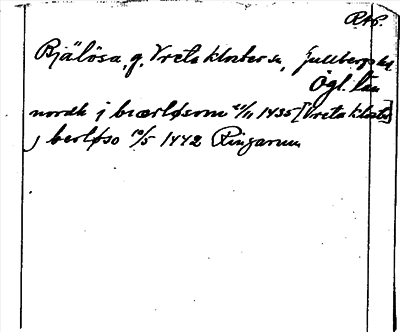 RAP.
Bjälösa, g. Vreta kloster sn, Gullbergs hd
Ögl. län
nordh j biærløsom 21/11 1435 [Vreta kloster]
j berløso 10/5 1442 Ringarum